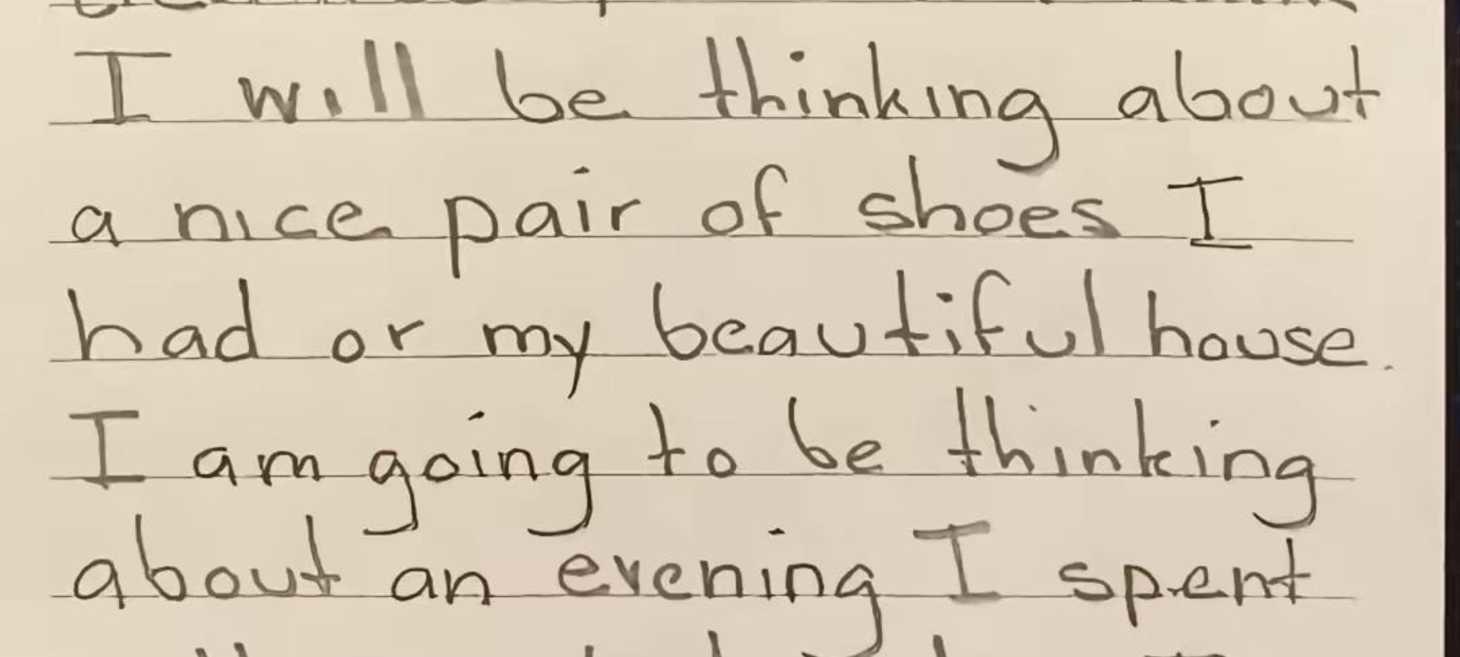 I will be thinking about
a nice pair of shoes I
had or my beautiful house.
I am going to be thinking
about an evening I spent